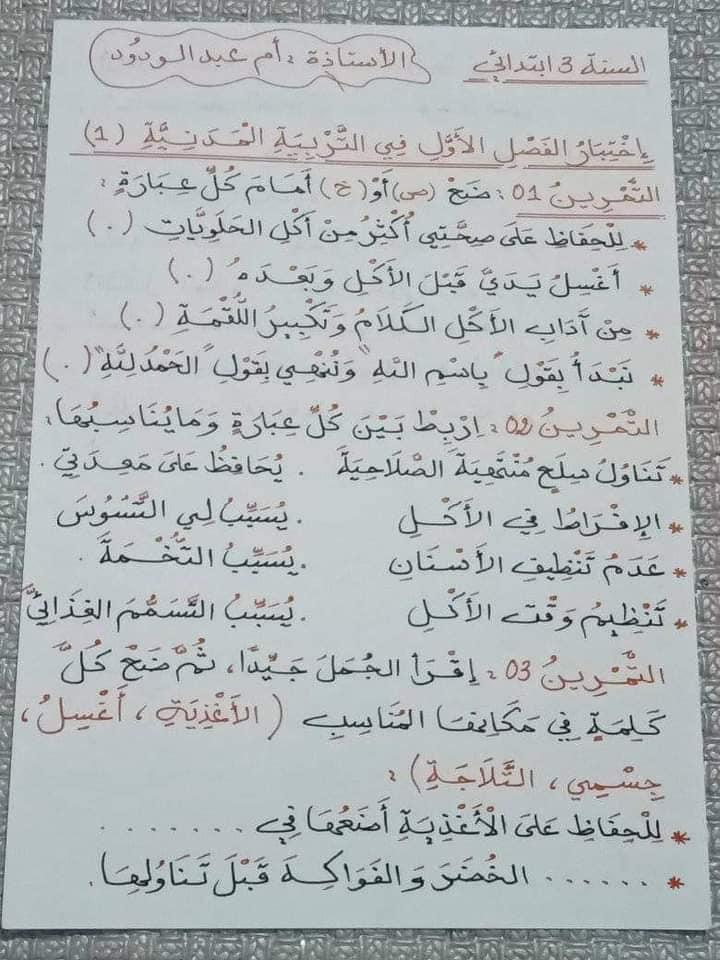 السنة 3 ابتدائي
الأستاذة : أم عبد الودود
إِخْتِبَارُ الفَصْلِ الأَوَّلِ فِي التَّرْبِيَةِ المَدَنِيَّةِ (1)
التَّمْرِينُ 01 : ضَعْ (ص) أَوْ (خ) أَمَامَ كُلِّ عِبَارَةٍ :
* لِلْحِفَاظِ عَلَى صِحَّتِي أُكْثِرُ مِنْ أَكْلِ الحَلَوِيَّاتِ (.)
* أَغْسِلُ يَدَيَّ قَبْلَ الأَكْلِ وَبَعْدَهُ (.)
* مِنْ آدَابِ الأَكْلِ الكَلَامُ وَتَكْبِيرُ اللُّقْمَةِ (.)
* نَبْدَأُ بِقَوْلِ "بِاسْمِ اللهِ" وَنُنْهِي بِقَوْلِ "الحَمْدُ لِلَّهِ" (.)
التَّمْرِينُ 02 : اِرْبِطْ بَيْنَ كُلِّ عِبَارَةٍ وَمَا يُنَاسِبُهَا :
* تَنَاوُلُ سِلَعٍ مُنْتَهِيَةَ الصَّلَاحِيَةَ . يُحَافِظُ عَلَى مَعِدَتِي .
* الإِفْرَاطُ فِي الأَكْلِ . يُسَبِّبُ لِي التَّسَوُسَ
* عَدَمُ تَنْظِيفِ الأَسْنَانِ . يُسَبِّبُ التُّخْمَةَ .
* تَنْظِيمُ وَقْتِ الأَكْلِ . يُسَبِّبُ التَّسَمُّمَ الغِذَائِيَّ
التَّمْرِينُ 03 : اِقْرَأْ الجُمَلَ جَيِّدًا، ثُمَّ ضَعْ كُلَّ
كَلِمَةٍ فِي مَكَانِهَا المُنَاسِبِ (الأَغْذِيَةِ ، أَغْسِلُ ،
جِسْمِي ، الثَّلَاجَةِ) :
* لِلْحِفَاظِ عَلَى الْأَغْذِيَةِ أَضَعُهَا فِي .......
* ...... الخُضَرَ وَالفَوَاكِهَ قَبْلَ تَنَاوُلِهَا.